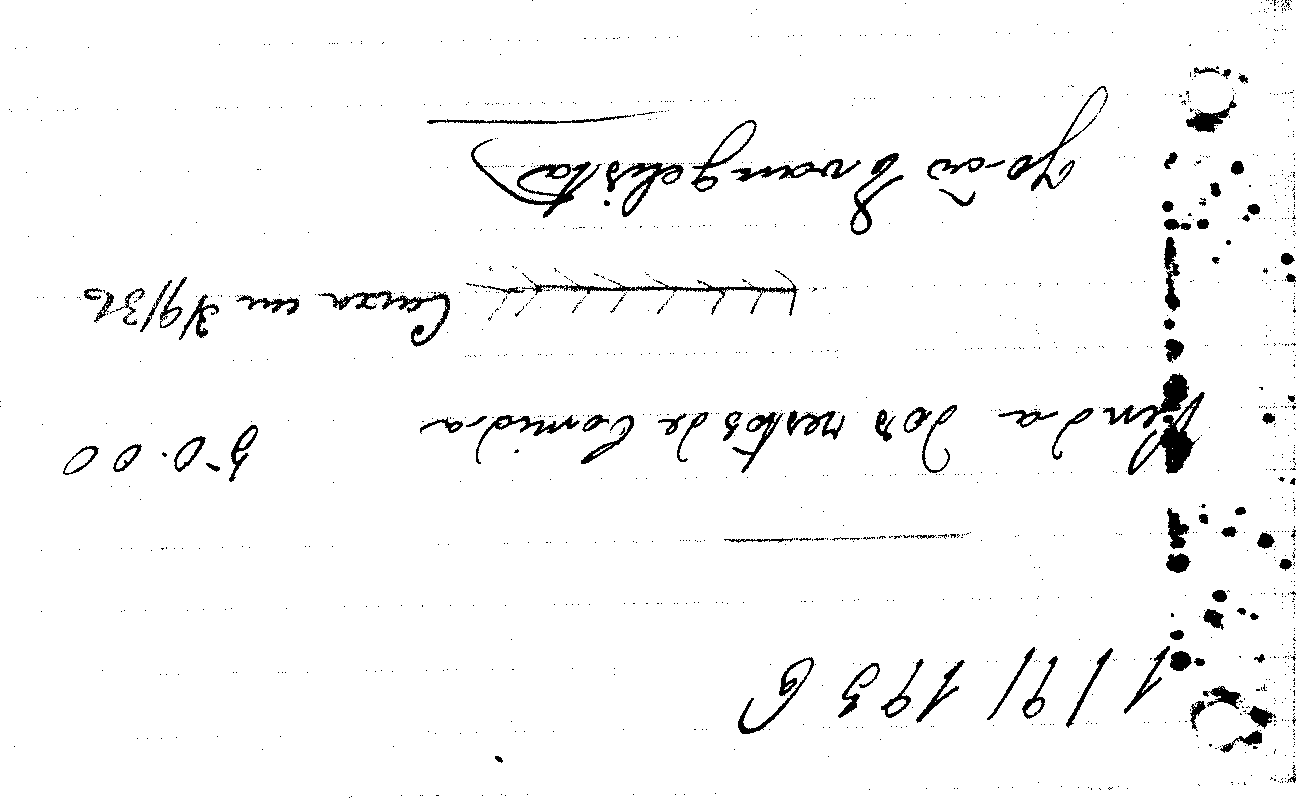 1/9/1936
Venda dos restos de Comida 50.00
Caixa em 3/9/36
João Evangelista